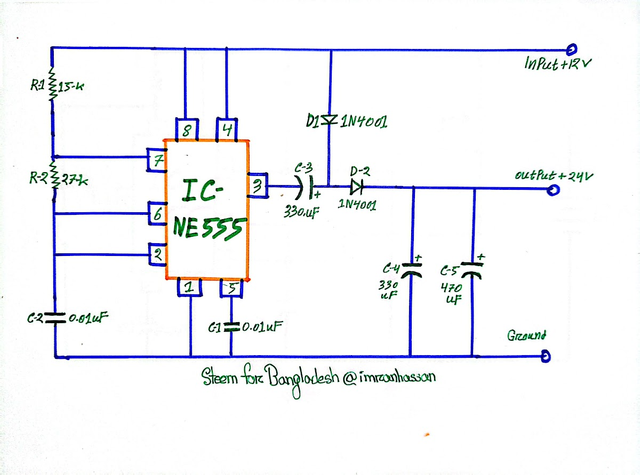 InPut+12V
R1 15-k
D1 1N4001
8 4
7
R-2 27-k
IC-
NE555
3
C-3
330uF
+
D-2
1N4001
outPut+24V
6
2
1 5
C-2 0.01uF
C1 0.01uF
C-4
330
uF
+
C-5
470
uF
+
Ground
Steem for Bangladesh @imranhassan